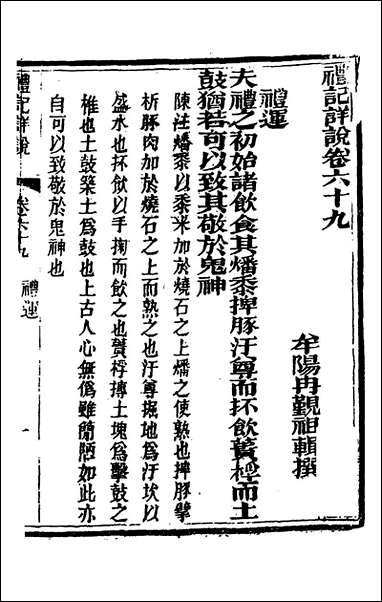 禮記詳說卷六十九
牟陽冉覲祖輯撰
禮運
夫禮之初始諸飲食其燔黍捭豚汙尊而抔飲蕢桴而土
鼓猶若可以致其敬於鬼神
陳注燔黍以黍米加於燒石之上燔之使熟也捭豚擘
析豚肉加於燒石之上而熟之也汙尊掘地爲汙坎以
盛水也抔飲以手掬而飲之也蕢桴摶土塊爲擊鼓之
椎也土鼓築土爲鼓也上古人心無僞雖簡陋如此亦
自可以致敬於鬼神也
禮記詳說
卷六十九
禮運
一